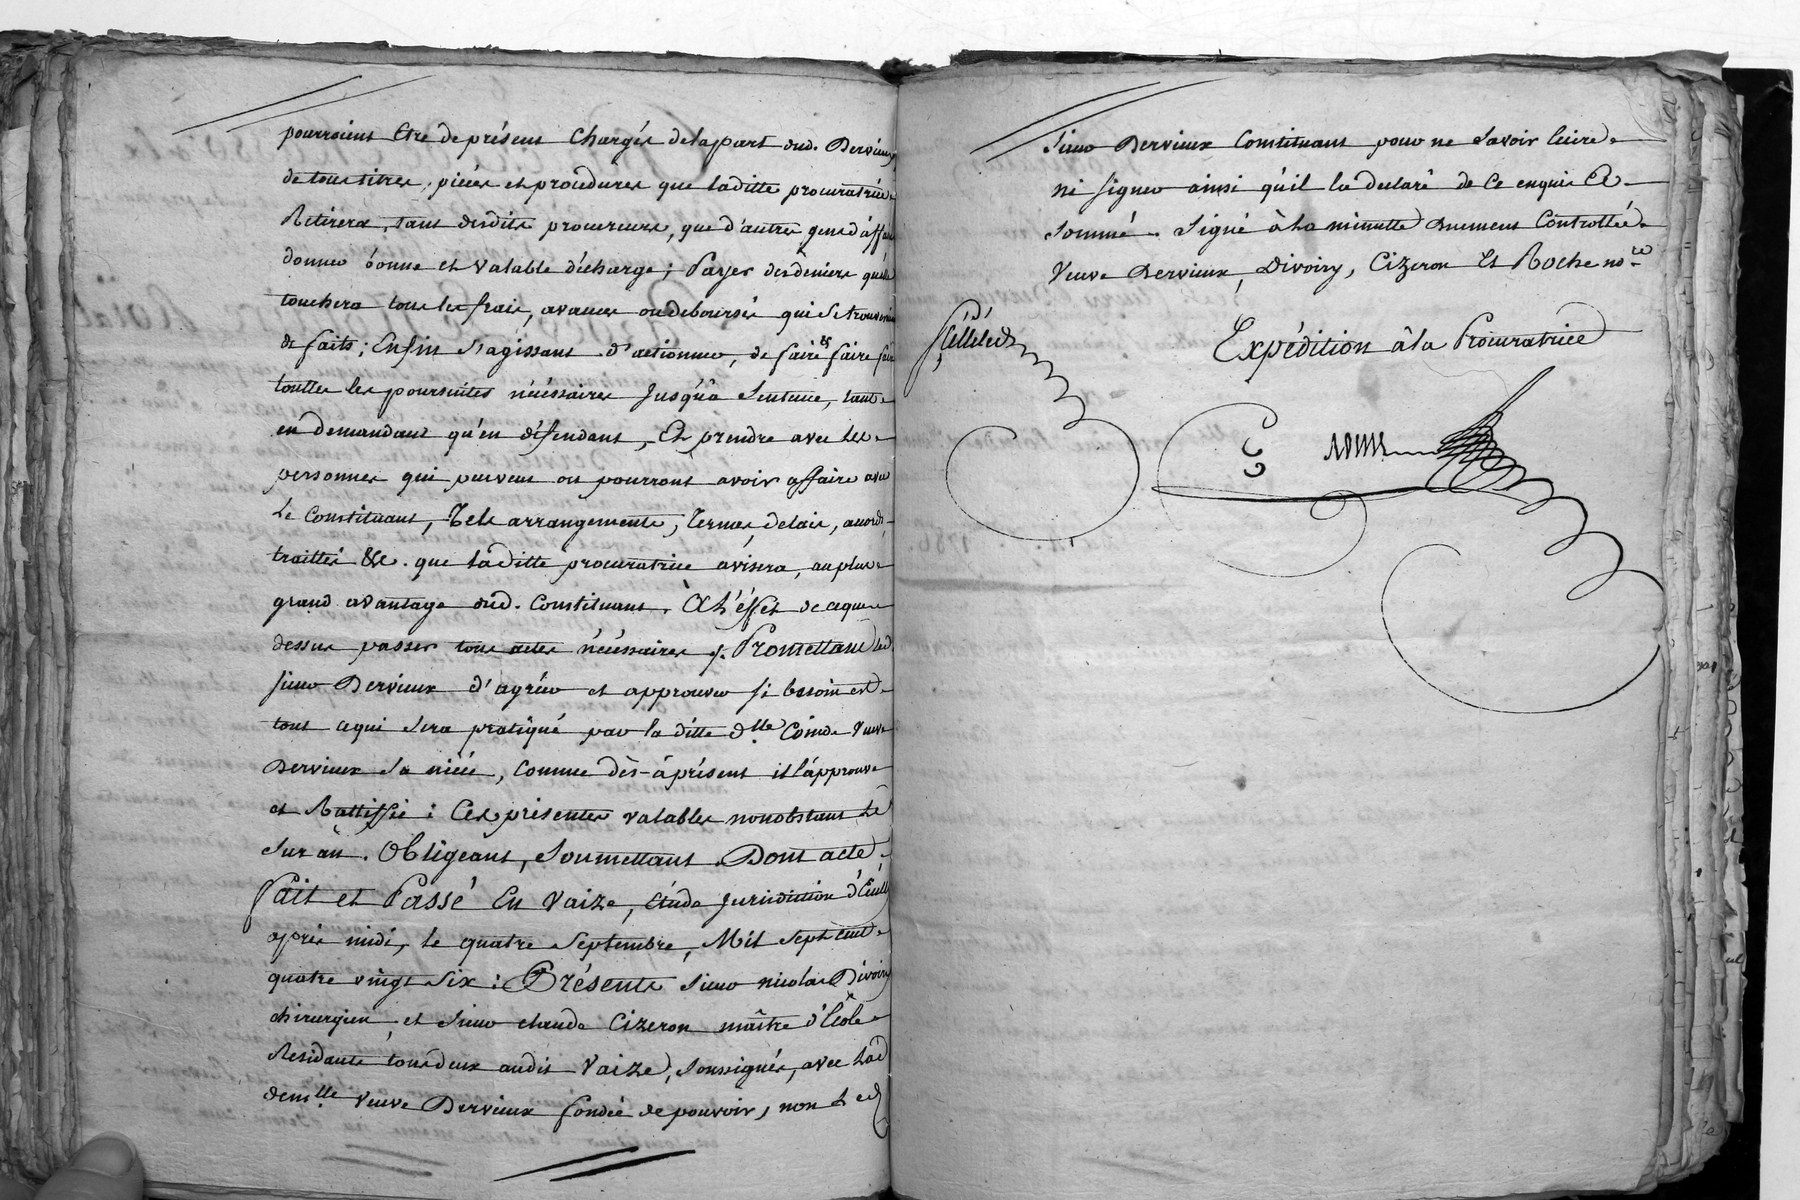 pourroient Etre de présent Chargés de la part dud. Dervieux
de tous titres, piéces et procédures que laditte procuratrice
Retirera, tant desdits procureurs, que d'autres gens d'affaire
donner bonne et valable décharge; Payer des déniers qu'elle
touchera tous les frais, avances ou deboursés qui se trouveront
de faits; Enfin s'agissant d'actionner, de faire et faire faire
touttes les poursuites nécéssaires Jusqu'à Sentence, tant
en demandant qu'en défendant, Et prendre avec les
personnes qui peuvent ou pourront avoir affaire avec
Le Constituant, Tels arrangements, Termes, delais, accords,
traittés &c. que laditte procuratrice avisera, au plus
grand avantage dud. Constituant. A L'éffet de ce que
dessus passer tous actes nécéssaires /. Promettant led.
sieur Dervieux d'agréer et approuver si besoin est
tout ce qui sera pratiqué par la ditte dlle Coinde veuve
Dervieux sa niéce, Comme dès-àprésent il l'approuve
et Rattiffie: Ces présentes valables nonobstant Le
Sur an. Obligeant, Soumettant. Dont acte,
Fait et Passé En Vaize, étude Jurisdiction d'Ecully
après midi, le quatre Septembre, Mil Sept Cent
quatre vingt Six: Présents sieur nicolas Divoiry
chirurgien, et Sieur claude Cizeron maître d'Ecole
Residants tous deux audit Vaize, Soussignés, avec Lad.
demlle veuve Dervieux fondée de pouvoir, non Led.
Sieur Dervieux Constituant pour ne savoir Ecrire
ni signer ainsi qu'il la declaré de ce enquis Et
Sommé. Signé à la minutte duement Controllée
Veuve Dervieux, Divoiry, Cizeron Et Roche nore
Scellé led.
Expédition à la Procuratrice